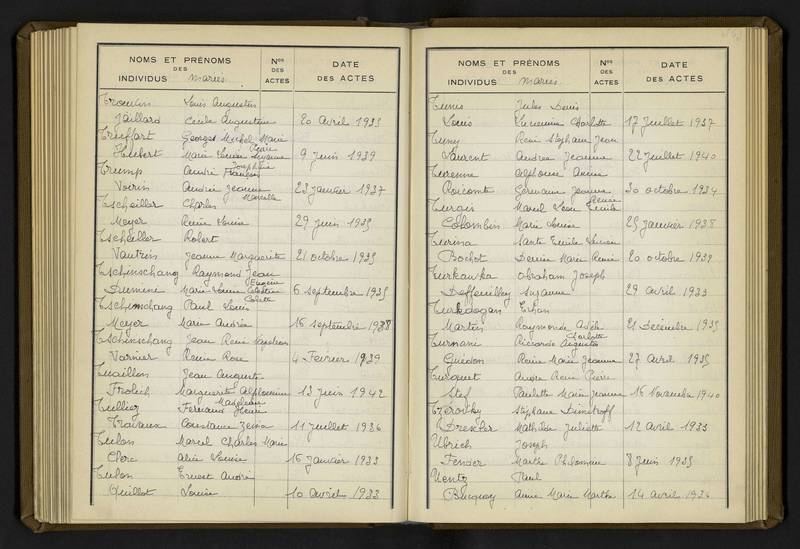 NOMS ET PRÉNOMS
DES
INDIVIDUS mariés
Nos
DES
ACTES
DATE
DES ACTES
Louis Augustin
Jaillard Cécile Augustine 20 avril 1935
Trieffart Georges Michel Marie
Pierre
Hubert Marie Louise Suzanne 9 Juin 1939
Joséphine
Trump André François
Voirin Andrée Jeanne 23 janvier 1937
Marcelle
Tscheiller Charles
Meyer Renée Louise 29 Juin 1935
Tscheiller Robert
Vautrin Jeanne Marguerite 21 octobre 1935
Tschinschang Raymond Jean
Eugène
Marie Louise Célestine 6 septembre 1935
Colette
Tschinschang Paul Louis
Meyer Marie Andrée 16 septembre 1938
Tschinschang Jean René
Varnier Renée Rose 4 Fevrier 1939
Tuaillon Jean Auguste
Frolich Marguerite Alphonsine 13 Juin 1942
Madeleine
Fernand Henri
Travaux Constance 11 Juillet 1936
Tulon Marcel Charles Marie
Clerc Alice Louise 16 janvier 1933
Tulon Ernest André
Quillot Louise 10 avril 1933
NOMS ET PRÉNOMS
DES
INDIVIDUS mariés
Nos
DES
ACTES
DATE
DES ACTES
Jules Denis
Louis Lucienne Charlotte 17 Juillet 1937
René Stéphane Jean
Laurent Andrée Jeanne 22 Juillet 1940
Turenne Alphonse
Germaine Jeanne 30 octobre 1934
Marcel Léon Emile
Colombin Marie Louise 25 janvier 1938
Turina Sante Emile Lucien
Bochot Denise Marie Renée 20 octobre 1938
Turkawka Abraham Joseph
Deffeuilley Suzanne 29 avril 1933
Turkdogan
Martin Raymonde Adèle 21 Décembre 1935
Charlotte
Turnani Ricardo Augustin
Guidon Reine Marie Jeanne 27 avril 1935
Turquet André René Pierre
Stef Paulette Marie Jeanne 16 Novembre 1940
Stéphane Dimitroff
Drescher Mathilde Juliette 12 avril 1933
Ulrich Joseph
Fender Marthe Philomène 8 juin 1935
Uentz Paul
Bucquoy Anne Marie Marthe 14 avril 1936